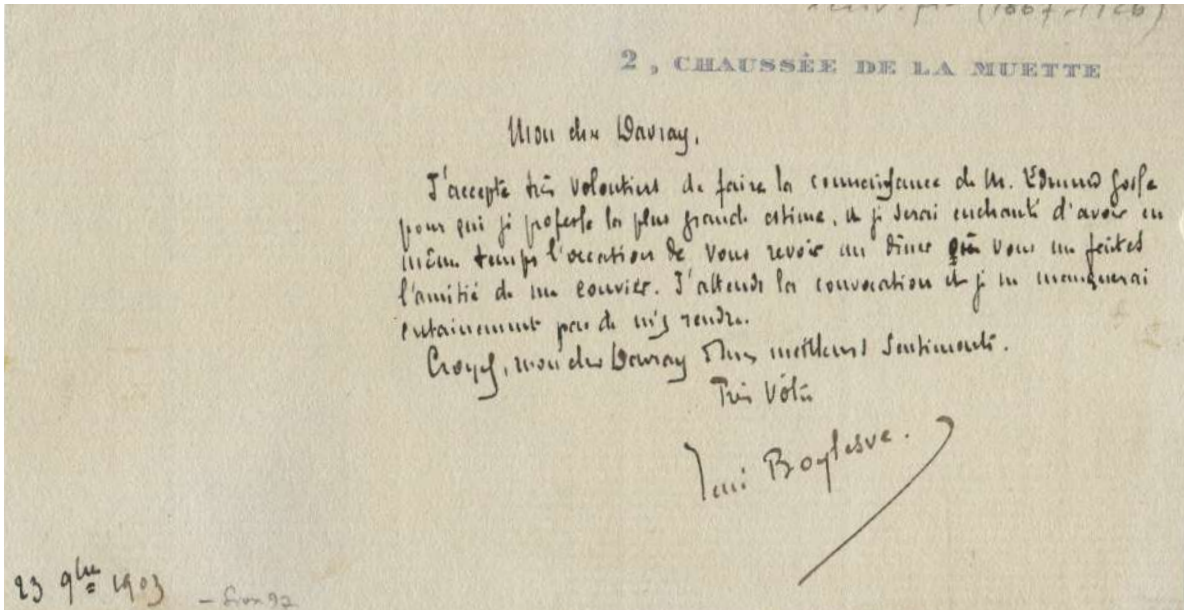 (1867-1926)
2, CHAUSSÉE DE LA MUETTE
Mon cher Davray,
J'accepte très volontiers de faire la connaissance de M. Edmund Gosse
pour qui je professe la plus grande estime, et je serai enchanté d'avoir en
même temps l'occasion de vous revoir au dîner où vous me faites
l'amitié de me convier. J'attends la convocation et je ne manquerai
certainement pas de m'y rendre.
Croyez, mon cher Davray à mes meilleurs sentiments.
Très vôtre
René Boylesve.
23 9bre 1903